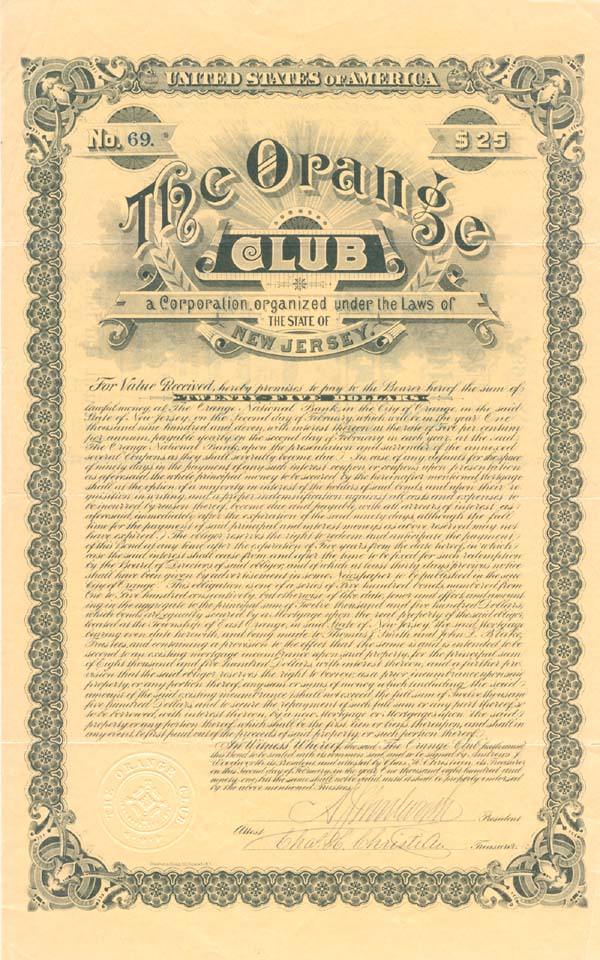 UNITED STATES OF AMERICA
No. 69. $25
The Orange
CLUB
a Corporation, organized under the Laws of
THE STATE OF
NEW JERSEY.
For Value Received, hereby promises to pay to the Bearer hereof the sum of
TWENTY-FIVE DOLLARS
lawful money, at The Orange National Bank, in the City of Orange, in the said
State of New Jersey, on the second day of February, which will be in the year One
thousand nine hundred and eleven, with interest thereon, at the rate of Five per centum
per annum, payable yearly on the second day of February in each year, at the said
The Orange National Bank, upon the presentation and surrender of the annexed
several Coupons as they shall severally become due. In case of any default for the space
of ninety days in the payment of any such interest coupon or coupons upon presentation
as aforesaid, the whole principal money to be secured by the hereinafter mentioned Mortgage
shall at the option of a majority in interest of the holders of said bonds, and upon their re-
quisition in writing, and a proper indemnification against all costs and expenses to
be incurred by reason thereof, become due and payable, with all arrears of interest as
aforesaid, immediately after the expiration of the said ninety days, although the full
time for the payment of said principal and interest moneys as above reserved may not
have expired. The obligor reserves the right to redeem and anticipate the payment
of this Bond at any time after the expiration of Five years from the date hereof, in which
case the said interest shall cease from and after the time to be fixed for such redemption
by the Board of Directors of said obligor, and of which at least thirty days previous notice
shall have been given by advertisement in some Newspaper to be published in the said
City of Orange. This obligation is one of a series of Five hundred bonds, numbered from
One to Five hundred consecutively, but otherwise of like date, tenor and effect, and amount-
ing in the aggregate to the principal sum of Twelve thousand and five hundred Dollars,
which bonds are equally secured by a Mortgage upon the real property of the said obligor,
located at the Township of East Orange, in said State of New Jersey, the said Mortgage
bearing even date herewith, and being made to Thomas J. Smith and John L. Blake,
Trustees, and containing a provision to the effect that the same is and is intended to be
second to an existing mortgage encumbrance upon said property, for the principal sum
of Eight thousand and five hundred Dollars, with interest thereon, and a further pro-
vision that the said obligor reserves the right to borrow, as a prior incumbrance upon said
property or any portion thereof, any sum or sums of money which including the said
amount of the said existing incumbrance, shall not exceed the full sum of Twelve thousand
five hundred Dollars, and to secure the repayment of such full sum or any part thereof so
to be borrowed, with interest thereon, by a new Mortgage or Mortgages upon the said
property or any portion thereof, which shall be the first lien or liens thereupon, and shall in
any event be first paid out of the proceeds of said property, or such portion thereof.
In Witness Whereof, the said The Orange Club has caused
this Bond to be sealed with its common seal, and to be signed by
its President, and attested by Chas. H. its Treasurer
on this Second day of February, in the year One thousand eight hundred and
ninety one, but the same shall not be valid until it shall be properly endorsed
by the above mentioned Trustees.
President
Attest
Chas. H. Treasurer.
THE ORANGE CLUB